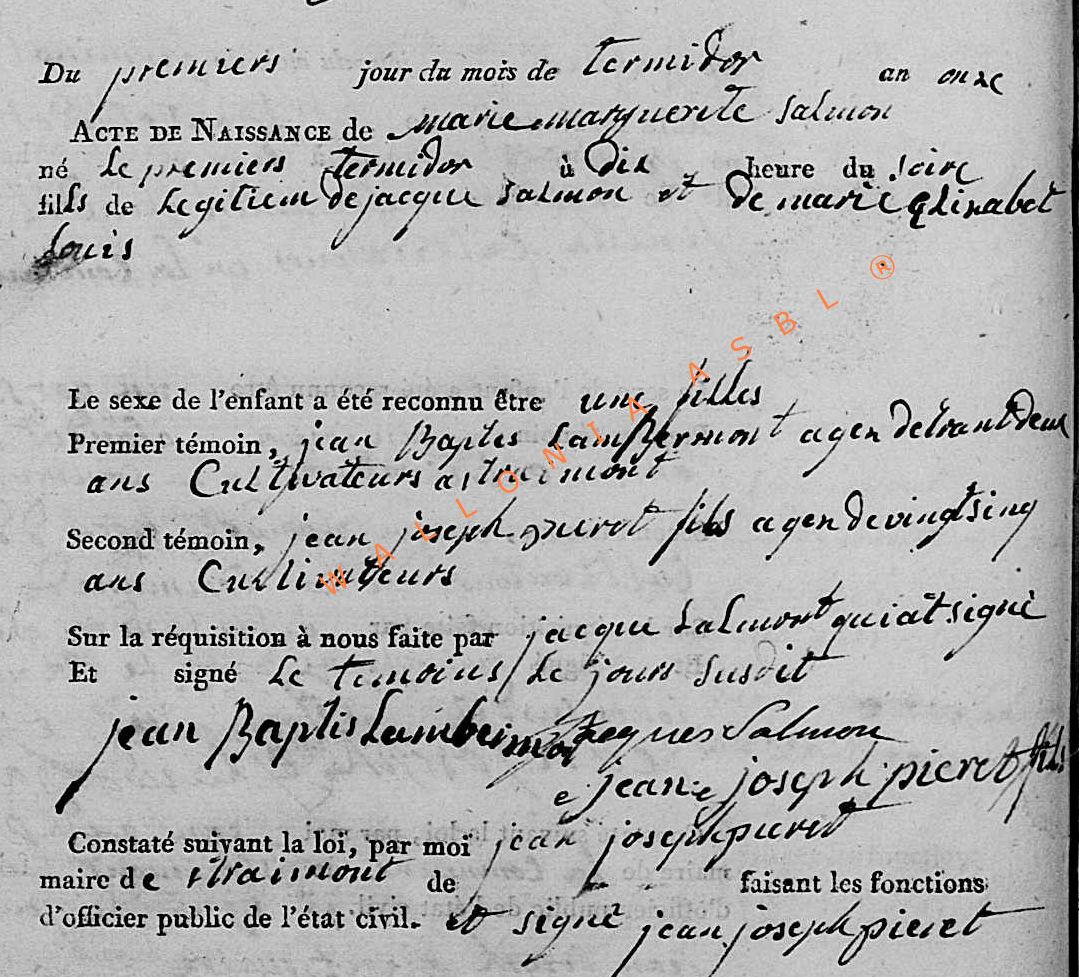 Du premiers jour du mois de termidor an onze
ACTE DE NAISSANCE de marie marguerite Salmon
né Le premiers termidor à dix heure du Soire
fills de Legitiem de jacque Salmon et de marie Elizabet
Louis
Le sexe de l'enfant a été reconnu être une filles
Premier témoin, jean Baptes Lambermont agen de trant deux
ans Cultivateurs a straimont
Second témoin, jean joseph pieret fils agen de vingt sinq
ans Cultivateurs
Sur la réquisition à nous faite par jacque Salmont qui at signé
Et signé Le temoins Le jours Susdit
jean Baptis Lambermont Jacques Salmon
jean joseph pieret fils
Constaté suivant la loi, par moi jean joseph pieret
maire de straimont de faisant les fonctions
d'officier public de l'état civil. et signé jean joseph pieret
WALLONIA ASBL ®